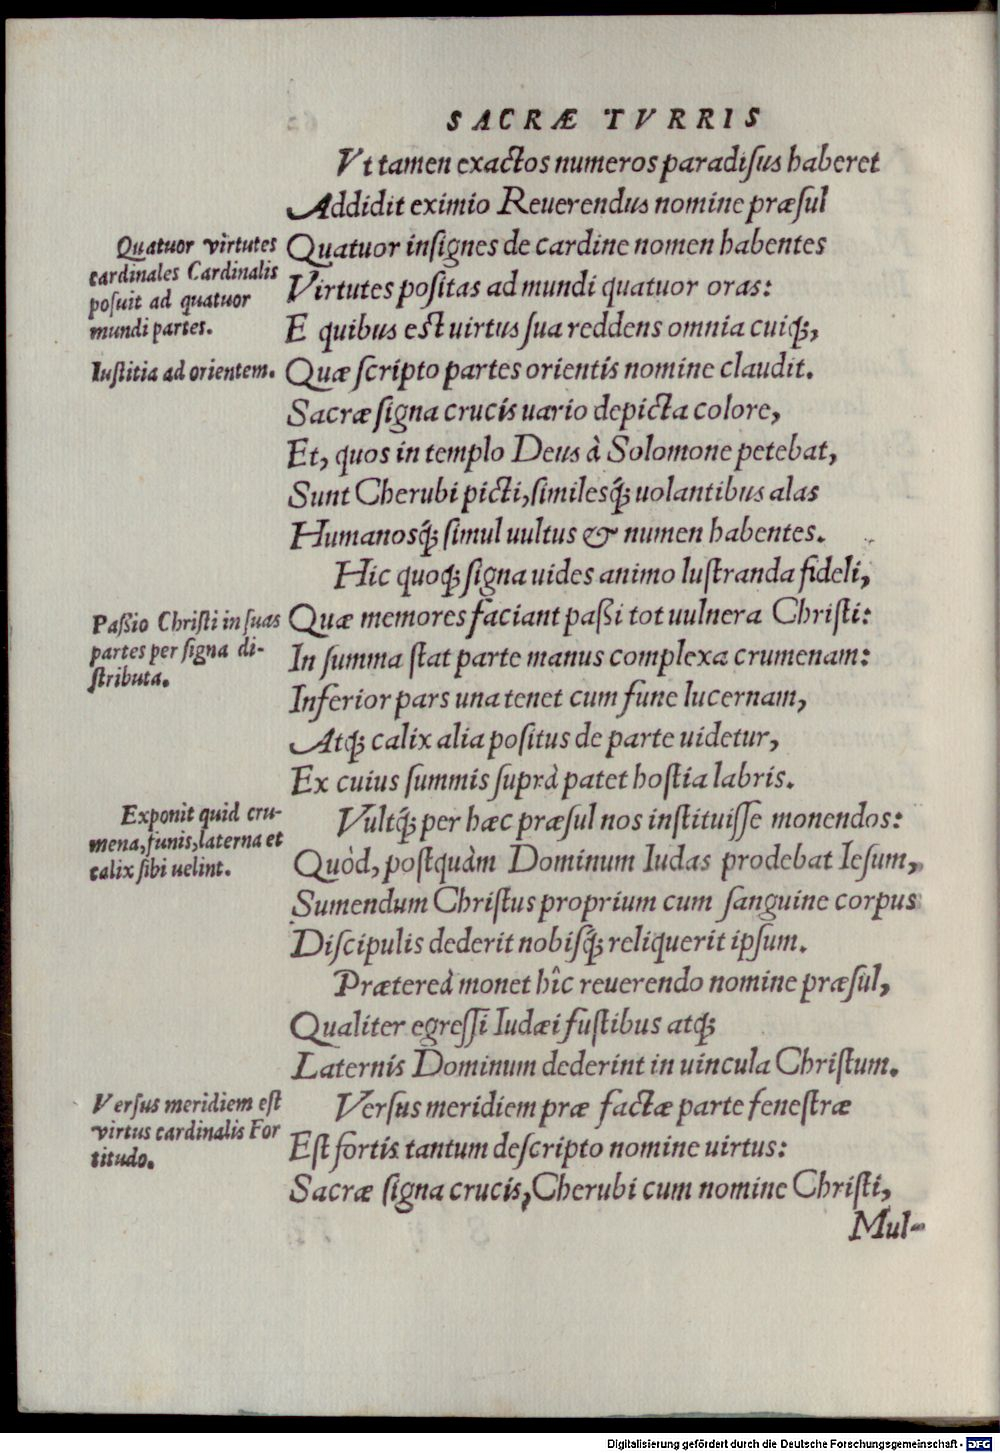 SACRÆ TVRRIS
Vt tamen exactos numeros paradiſus haberet
Addidit eximio Reuerendus nomine præſul
Quatuor virtutes
cardinales Cardinalis
poſuit ad quatuor
mundi partes.
Quatuor inſignes de cardine nomen habentes
Virtutes poſitas ad mundi quatuor oras:
E quibus eſt uirtus ſua reddens omnia cuiq́ꝫ,
Iuſtitia ad orientem.
Quæ ſcripto partes orientis nomine claudit.
Sacræ ſigna crucis uario depicta colore,
Et, quos in templo Deus à Solomone petebat,
Sunt Cherubi picti, ſimilesq́ꝫ uolantibus alas
Humanosq́ꝫ ſimul uultus & numen habentes.
Hic quoqꝫ ſigna uides animo luſtranda fideli,
Paßio Chriſti in ſuas
partes per ſigna di-
ſtributa.
Quæ memores faciant paßi tot uulnera Chriſti:
In ſumma ſtat parte manus complexa crumenam:
Inferior pars una tenet cum fune lucernam,
Atqꝫ calix alia poſitus de parte uidetur,
Ex cuius ſummis ſuprà patet hoſtia labris.
Exponit quid cru-
mena, funis, laterna et
calix ſibi uelint.
Vultq́ꝫ per hæc præſul nos inſtituiſſe monendos:
Quòd, poſtquàm Dominum Iudas prodebat Ieſum,
Sumendum Chriſtus proprium cum ſanguine corpus
Diſcipulis dederit nobiſq́ꝫ reliquerit ipſum.
Prætereà monet hîc reuerendo nomine præſul,
Qualiter egreſſi Iudæi fuſtibus atqꝫ
Laternis Dominum dederint in uincula Chriſtum.
Verſus meridiem eſt
virtus cardinalis For
titudo.
Verſus meridiem præ factæ parte feneſtræ
Eſt fortis tantum deſcripto nomine uirtus:
Sacræ ſigna crucis, Cherubi cum nomine Chriſti,
Mul-
Digitalisierung gefördert durch die Deutsche Forschungsgemeinschaft - DFG